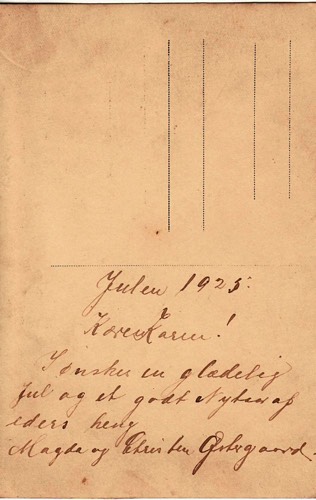 Julen 1925.
Kære Karen!
I ønskes en glædelig
Jul og et godt Nytaar af
eders heng
Magda og Christen Østergaard.